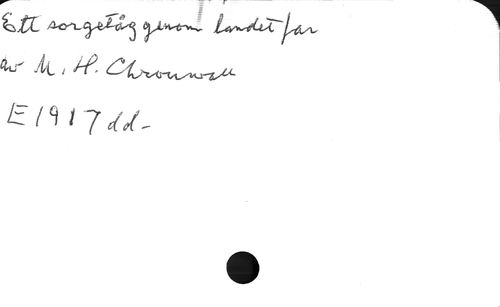 Ett sorgetåg genom landet far
av M. H. Chronwall
E 1917 dd-